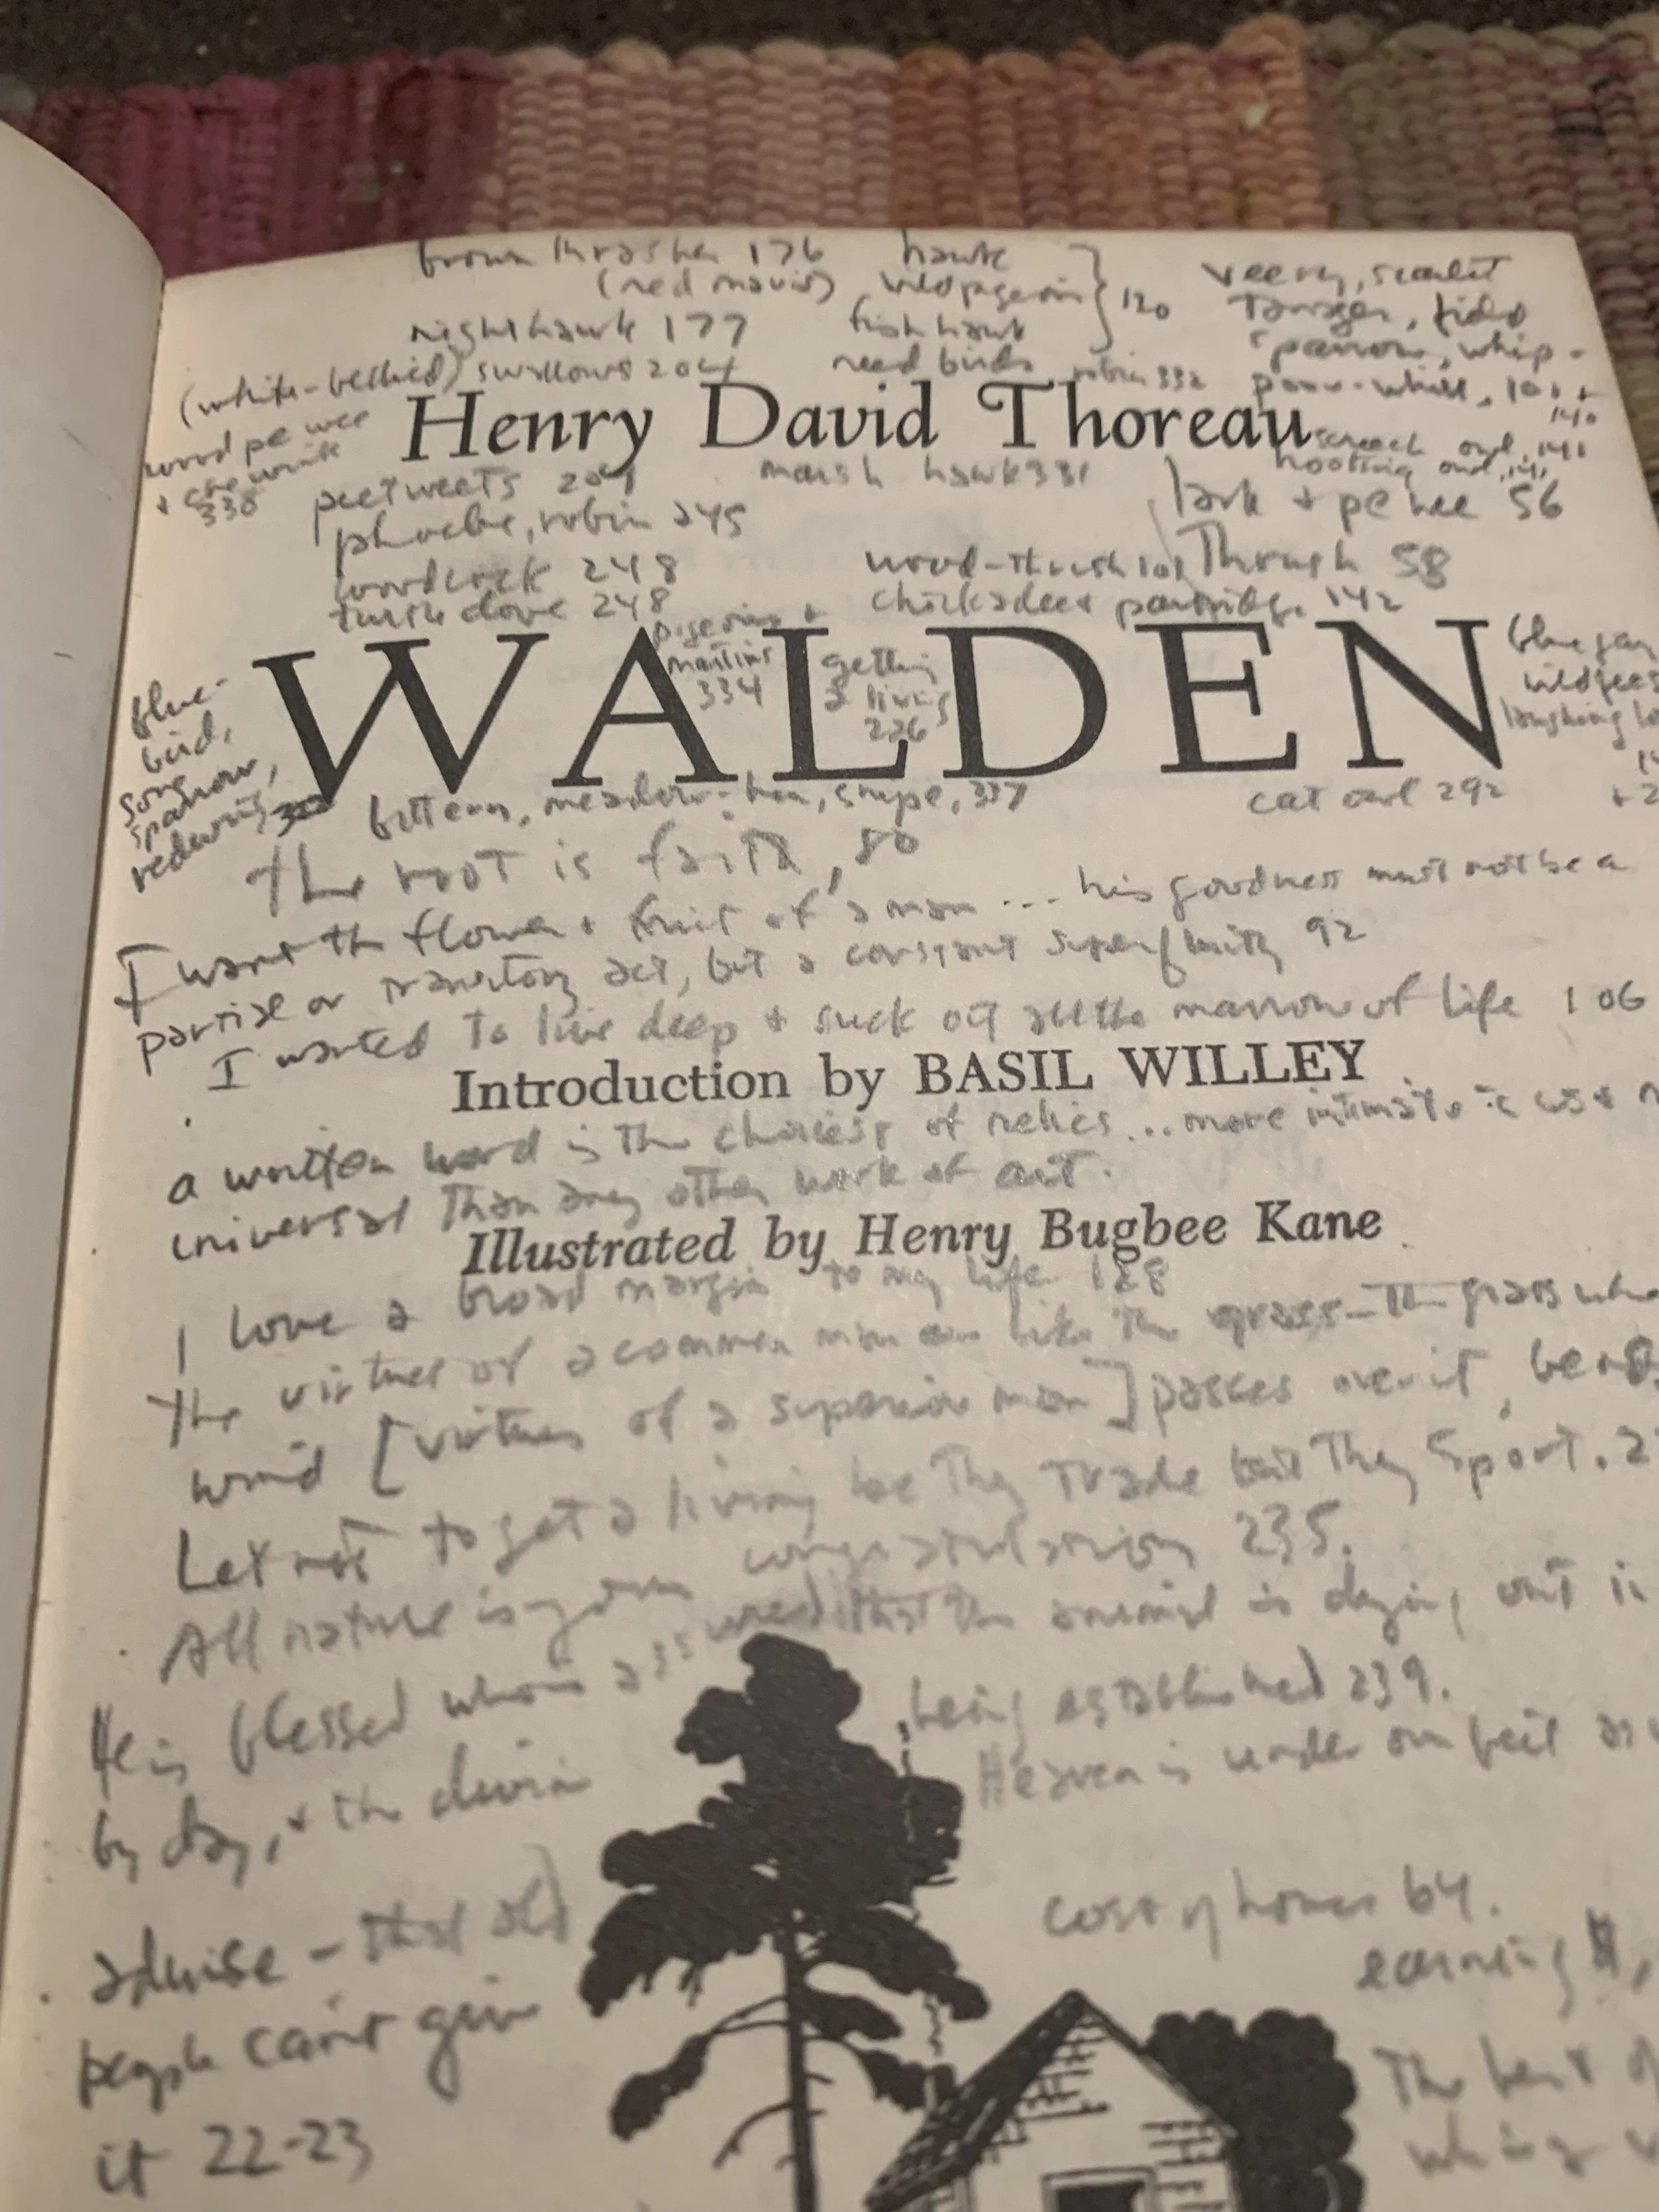 brown thrasher 176
(red mavis)
nighthawk 177
(white-bellied) swallows 204
hawk
wild pigeon } 120
fish hawk
reed birds
robin 332
veery, scarlet
tanager, field
sparrow, whip-
poor-will, 101 +
140
screech owl, 141
hooting owl, 141
Henry David Thoreau
wood pe wee
+ chewink
338
peetweets 204
phoebe, robin 245
woodcock 248
turtle dove 248
marsh hawk 331
lark + pe wee 56
wood-thrush 101
Thrush 58
chickadee + partridge 142
pigeons +
martins
334
getting
a living
226
WALDEN
blue jay
wild geese
laughing
blue-
bird,
song
sparrow,
redwing,
bittern, meadow-hen, snipe, 337
cat owl 292
the root is faith, 80
I want the flower + fruit of a man ... his goodness must not be a
partial or transitory act, but a constant superfluity 92
I wanted to live deep + suck out all the marrow of life 106
Introduction by BASIL WILLEY
a written word is the choicest of relics... more intimate
universal than any other work of art.
Illustrated by Henry Bugbee Kane
I love a broad margin to my life 128
the virtues of a common man are like the grass - the grass
wind [virtues of a superior man] passes over it, bends
Let not to get a living be thy trade but thy sport.
All nature is your congratulation 235.
He is blessed who is assured that the animal is dying out
by day, + the divine being established 239.
Heaven is under our feet as
advise - that old
people can't give
it 22-23
cost of house 64.
earning $,
The best of